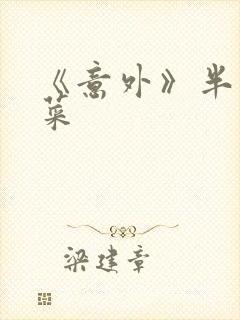 《意外》半
菜
梁建章